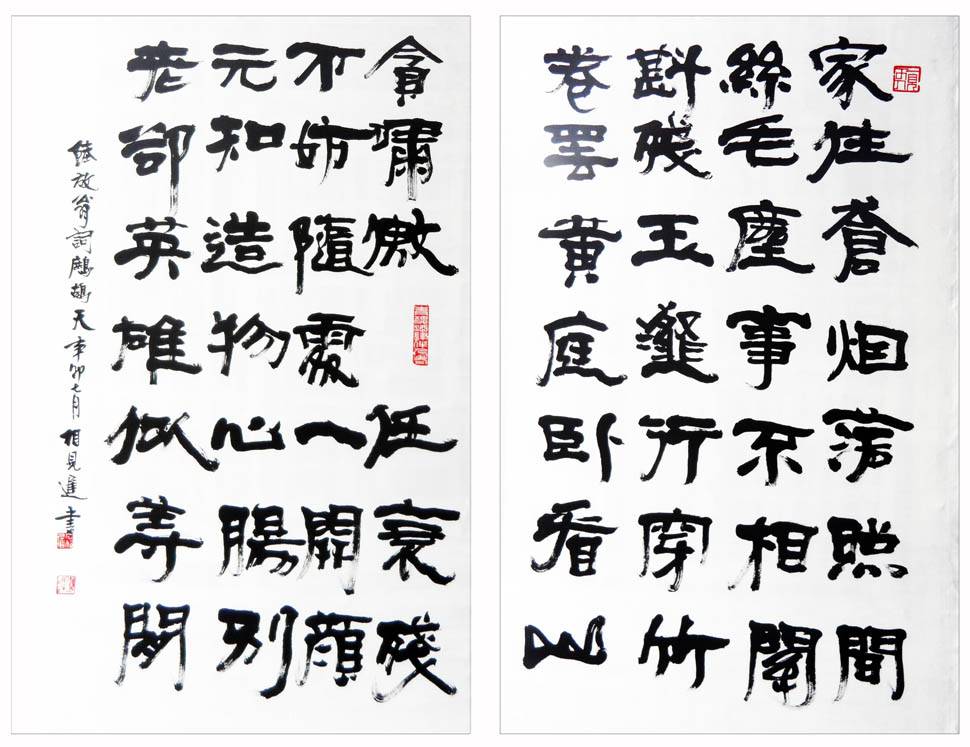 家住蒼烟落照間
絲毛塵事不相關
斟殘玉瀣行穿竹
卷罷黄庭卧看山
貪嘯傲 任衰殘
不妨隨處一開顔
元知造物心腸別
老郤英雄似等閑
陸放翁詞鷓鴣天辛卯七月相見進